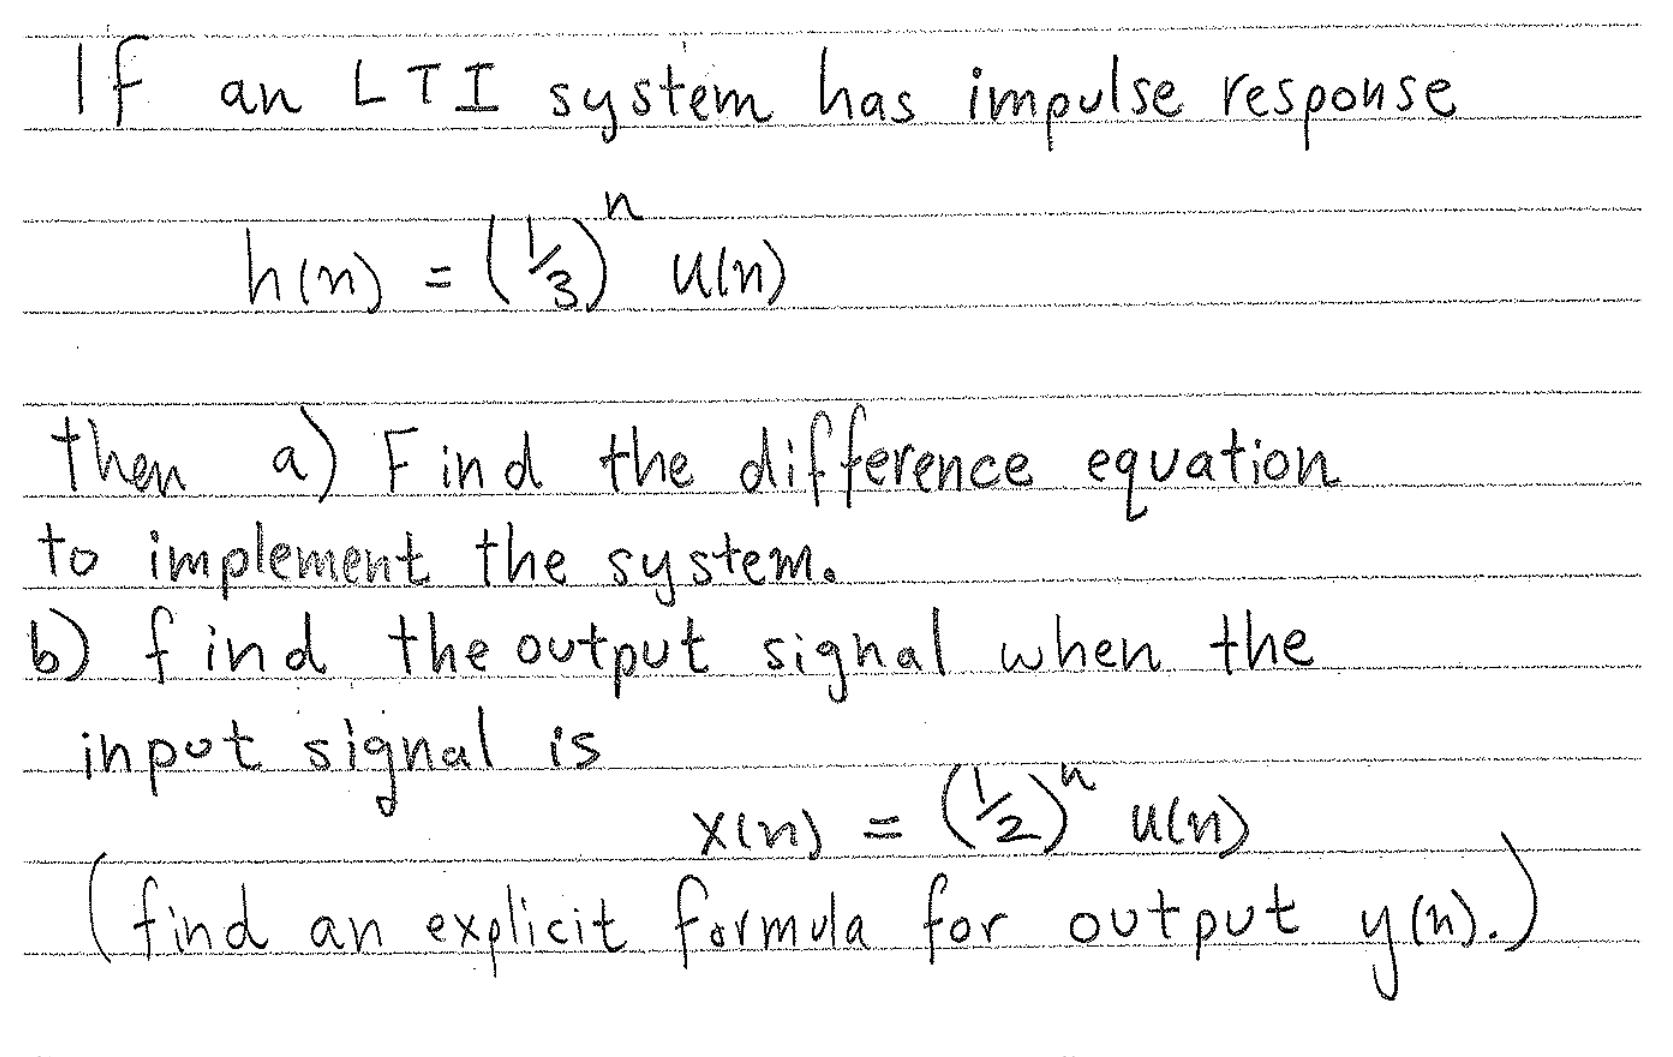 If an LTI system has impulse response
h(n) = (1/3)^n u(n)
then a) Find the difference equation
to implement the system.
b) find the output signal when the
input signal is
x(n) = (1/2)^n u(n)
(find an explicit formula for output y(n).)